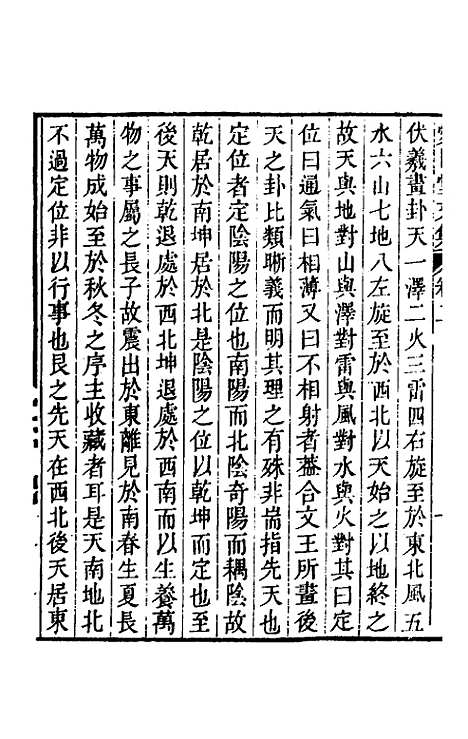 伏羲畫卦天一澤二火三雷四右旋至於東北風五
水六山七地八左旋至於西北以天始之以地終之
故天與地對山與澤對雷與風對水與火對其曰定
位曰通氣曰相薄又曰不相射者蓋合文王所畫後
天之卦比類晰義而明其理之有殊非耑指先天也
定位者定陰陽之位也南陽而北陰奇陽而耦陰故
乾居於南坤居於北是陰陽之位以乾坤而定也至
後天則乾退處於西北坤退處於西南而以生養萬
物之事屬之長子故震出於東離見於南春生夏長
萬物成始至於秋冬之序主收藏者耳是天南地北
不過定位非以行事也艮之先天在西北後天居東